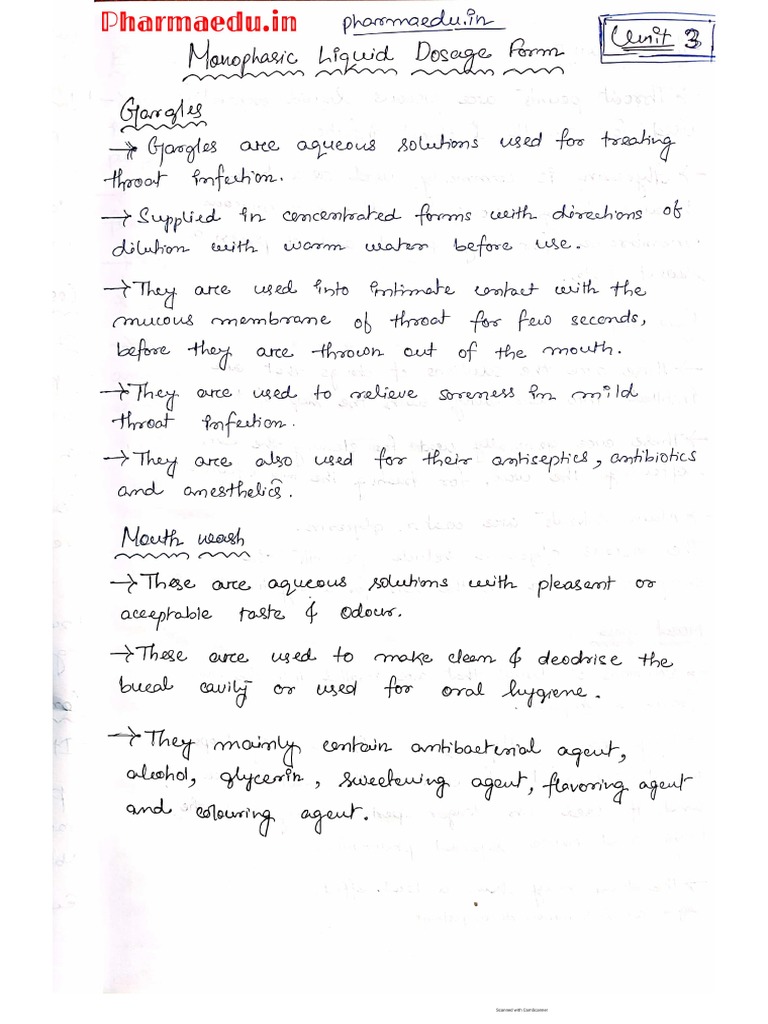 Pharmaedu.in
pharmaedu.in
Unit 3
Monophasic Liquid Dosage Form
Gargles
→ Gargles are aqueous solutions used for treating
throat infection.
→ Supplied in concentrated forms with directions of
dilution with warm water before use.
→ They are used into intimate contact with the
mucous membrane of throat for few seconds,
before they are thrown out of the mouth.
→ They are used to relieve soreness in mild
throat infection.
→ They are also used for their antiseptics, antibiotics
and anesthetics.
Mouth wash
→ These are aqueous solutions with pleasent or
acceptable taste & odour.
→ These are used to make clean & deodrise the
bucal cavity or used for oral hygiene.
→ They mainly contain antibacterial agent,
alcohol, glycerin, sweetening agent, flavoring agent
and colouring agent.
Scanned with CamScanner